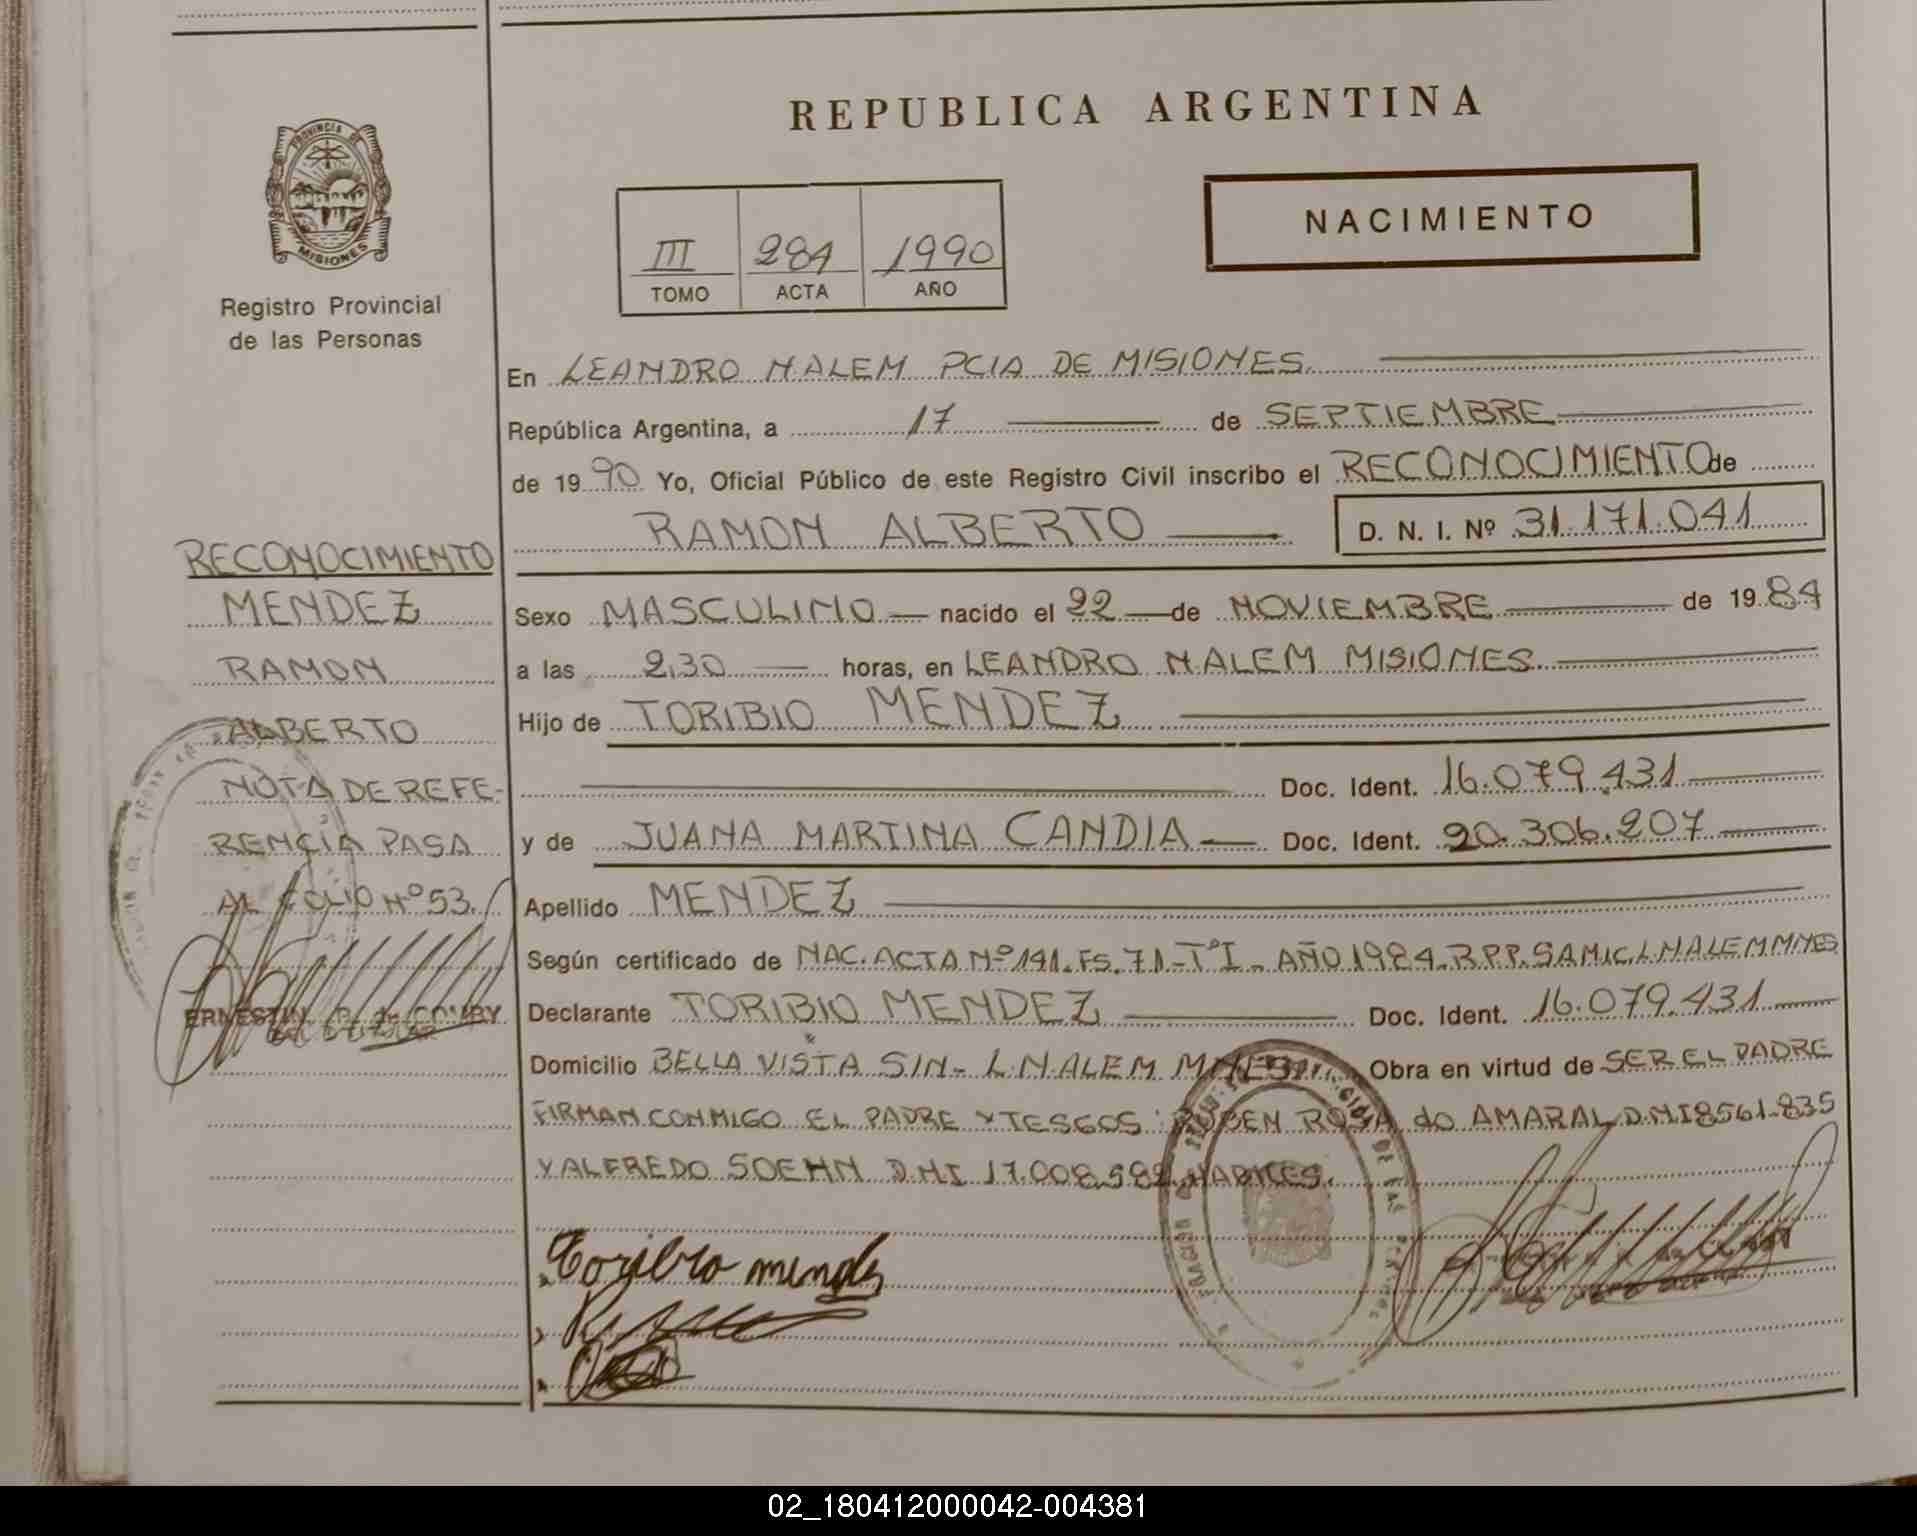 REPUBLICA ARGENTINA
PROVINCIA DE
MISIONES
Registro Provincial
de las Personas
NACIMIENTO
III 284 1990
TOMO ACTA AÑO
En LEANDRO N ALEM PCIA DE MISIONES.
República Argentina, a 17 de SEPTIEMBRE
de 1990 Yo, Oficial Público de este Registro Civil inscribo el RECONOCIMIENTO de
RAMON ALBERTO D. N. I. Nº 31.171.041
Sexo MASCULINO nacido el 22 de NOVIEMBRE de 1984
a las 2,30 horas, en LEANDRO N. ALEM MISIONES
Hijo de TORIBIO MENDEZ
Doc. Ident. 16.079.431
y de JUANA MARTINA CANDIA Doc. Ident. 20.306.207
Apellido MENDEZ
Según certificado de NAC. ACTA Nº 141. FS. 71-TºI- AÑO 1984. R.P.P. SAMIC. L N ALEM MNES
Declarante TORIBIO MENDEZ Doc. Ident. 16.079.431
Domicilio BELLA VISTA S/N- L.N. ALEM Obra en virtud de SER EL PADRE
FIRMAN CONMIGO EL PADRE Y TESGOS: RUBEN ROSA do AMARAL D.N.I 8561.835
Y ALFREDO SOEHN D.N.I 17.008.582 HABILES.
Toribio mendes
RECONOCIMIENTO
MENDEZ
RAMON
ALBERTO
NOTA DE REFE-
RENCIA PASA
AL FOLIO Nº 53.
02_180412000042-004381